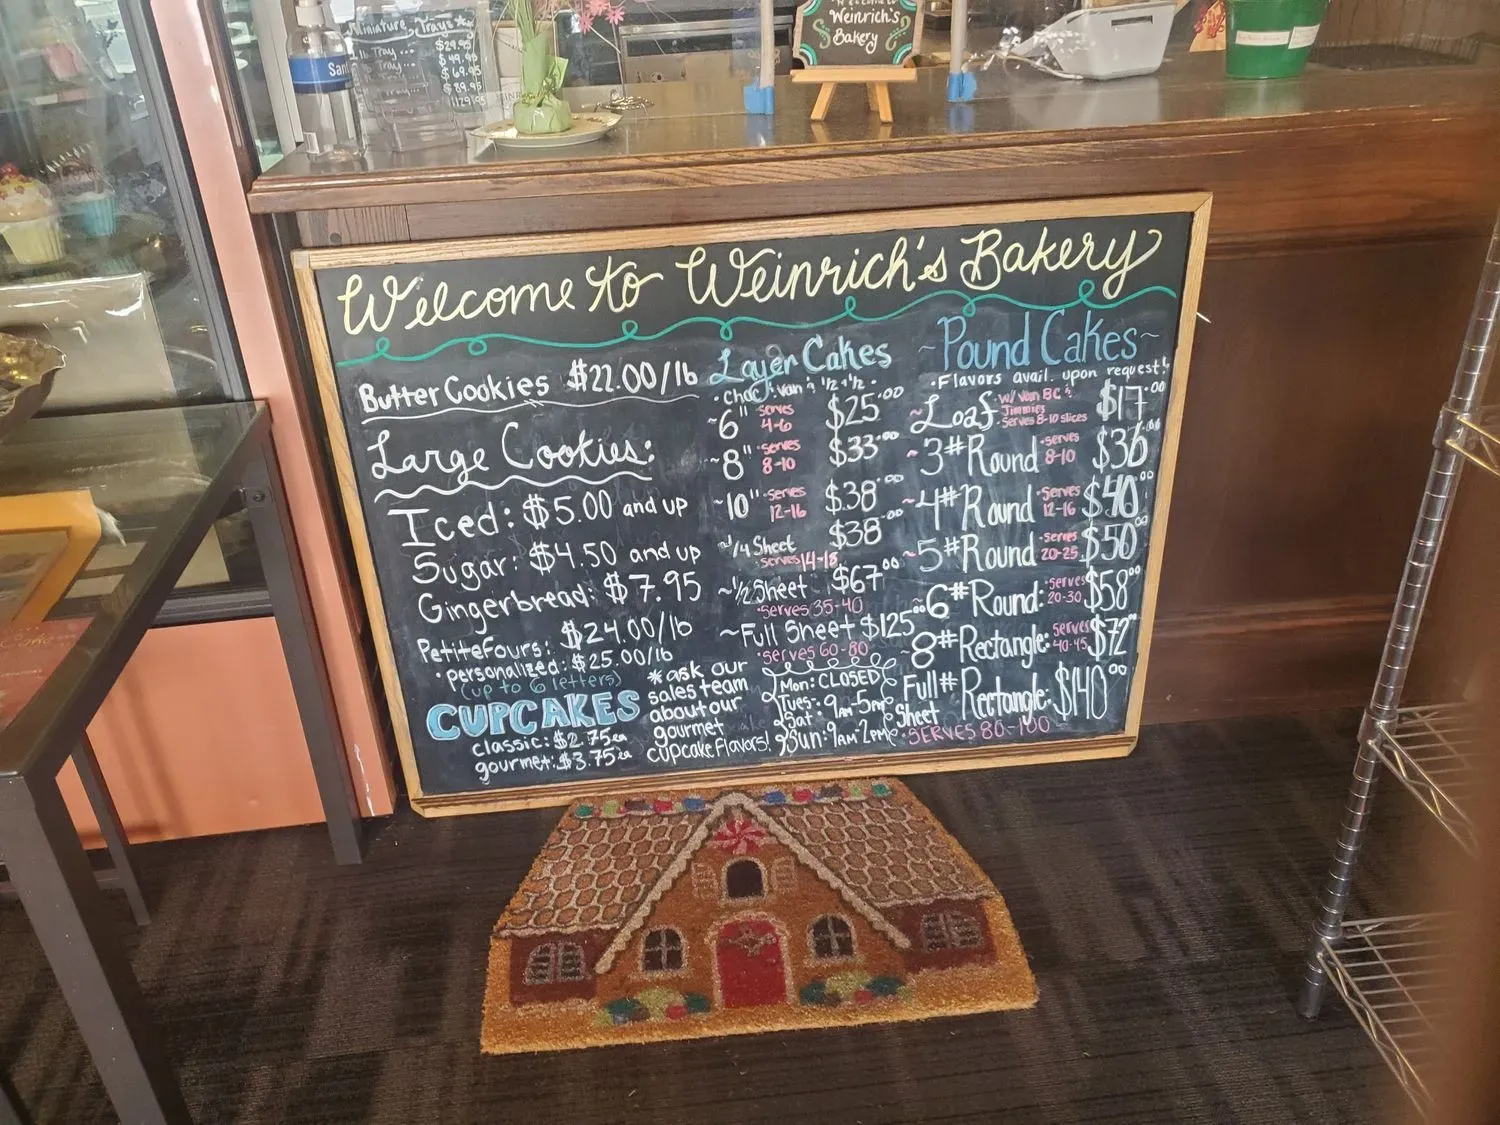 Miniature Trays
$29.95
$49.95
$69.95
$89.95
$129.95
Weinrich's
Bakery
Welcome to Weinrich's Bakery
Butter Cookies $22.00/lb
Large Cookies:
Iced: $5.00 and up
Sugar: $4.50 and up
Gingerbread: $7.95
Petitefours: $24.00/lb
• personalized: $25.00/lb
(up to 6 letters)
CUPCAKES
classic: $2.75ea
gourmet: $3.75ea
*ask our
sales team
about our
gourmet
cupcake flavors!
Layer Cakes
• Choc, Van, 1/2 & 1/2 •
~6" serves 4-6 $25.00
~8" serves 8-10 $33.00
~10" serves 12-16 $38.00
~1/4 Sheet serves 14-18 $38.00
~1/2 Sheet $67.00
• serves 35-40
~Full Sheet $125.00
• serves 60-80
Mon: CLOSED
Tues-Sat: 9AM-5PM
Sun: 9AM-2PM
~Pound Cakes~
• Flavors avail. upon request!
~Loaf w/ Van BC & Jimmies • serves 8-10 slices $17.00
~3# Round • serves 8-10 $36.00
~4# Round • serves 12-16 $40.00
~5# Round • serves 20-25 $50.00
~6# Round: serves 20-30 $58.00
~8# Rectangle: serves 40-45 $72.00
Full Sheet # Rectangle: $140.00
• SERVES 80-100